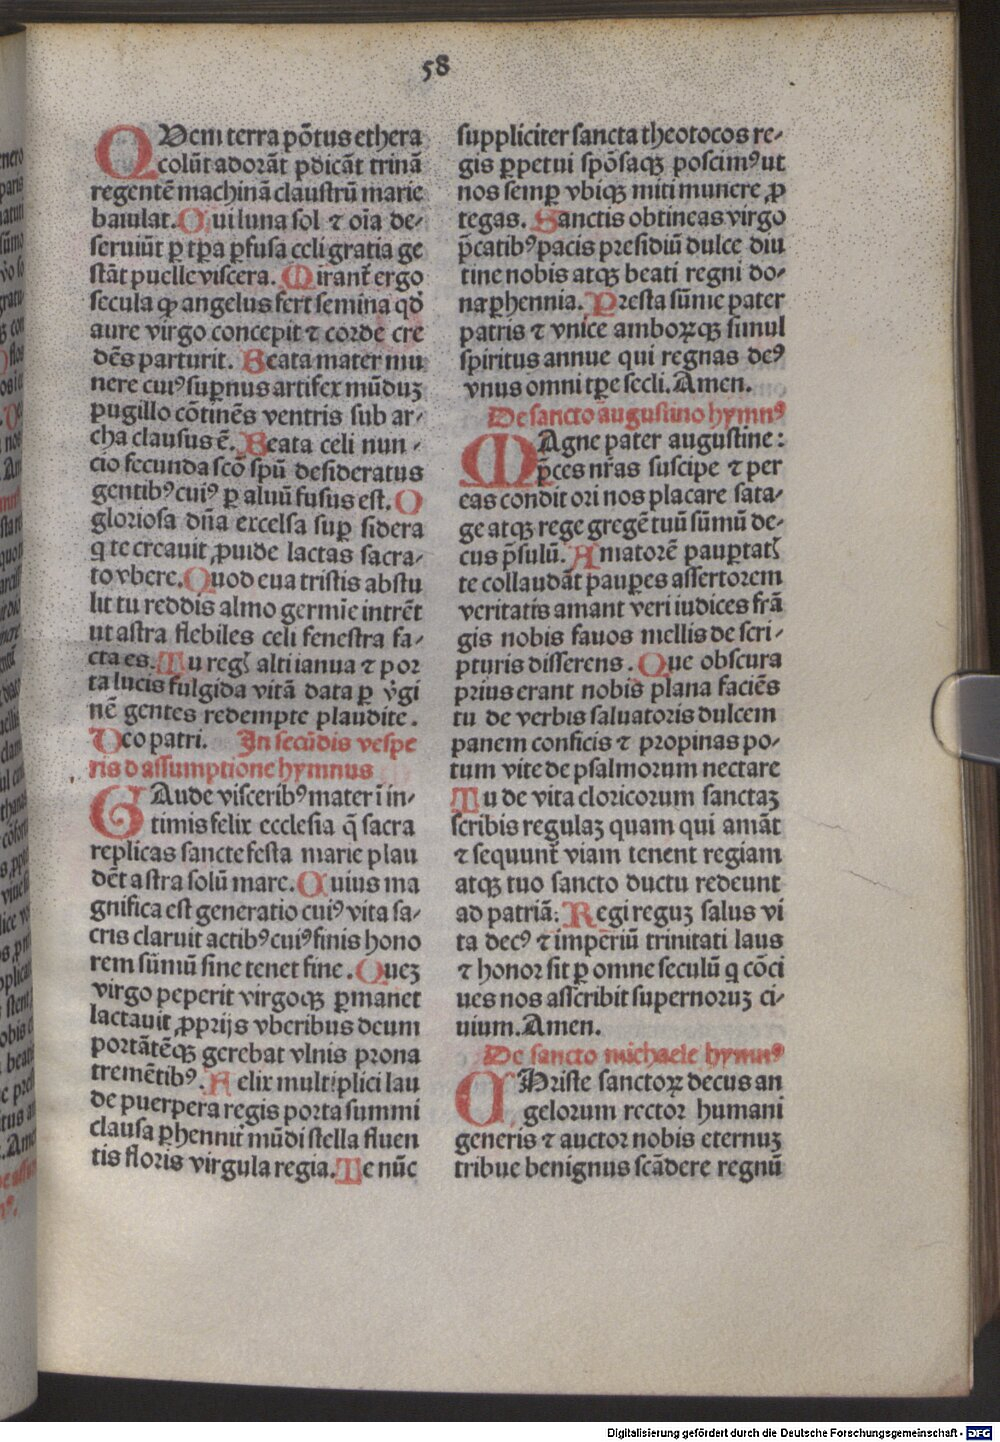 58
QVem terra põtus ethera
colũt adorãt p̃dicãt trinã
regentẽ machinã claustrũ marie
baiulat. Cui luna sol ⁊ oĩa de⸗
seruiũt ꝑ tp̃a ꝑfusa celi gratia ge
stãt puelle viscera. Mirant̃ ergo
secula ꝙ angelus fert semina qď
aure virgo concepit ⁊ corde cre
dẽs parturit. Beata mater mu
nere cuiꝰ suꝑnus artifex mũduʒ
pugillo cõtinẽs ventris sub ar⸗
cha clausus ẽ. Beata celi nun⸗
cio fecunda scõ spũ desideratus
gentibꝰ cuiꝰ ꝑ aluũ fusus est. O
gloriosa dña excelsa suꝑ sidera
q̇ te creauit ꝓuide lactas sacra⸗
to vbere. Quod eua tristis abstu
lit tu reddis almo germĩe intrẽt
ut astra flebiles celi fenestra fa⸗
cta es. Tu regꝭ alti ianua ⁊ por
ta lucis fulgida vitã data ꝑ v̇gi
nẽ gentes redempte plaudite.
Deo patri. In secũdis vespe
ris d assumptione hymnus
GAude visceribꝰ mater ĩ in⸗
timis felix ecclesia q̃ sacra
replicas sancte festa marie plau
dẽt astra solũ mare. Cuius ma
gnifica est generatio cuiꝰ vita sa⸗
cris claruit actibꝰ cuiꝰ finis hono
rem sũmũ sine tenet fine. Queʒ
virgo peperit virgoqʒ ꝑmanet
lactauit ꝓprijs vberibus deum
portãtẽqʒ gerebat vlnis prona
tremẽtibꝰ. Felix multiplici lau
de puerpera regis porta summi
clausa ꝑhennit̃ mũdi stella fluen
tis floris virgula regia. Te nũc
suppliciter sancta theotocos re⸗
gis ꝑpetui spõsaqʒ poscimꝰ ut
nos semꝑ vbiqʒ miti munere ꝓ
tegas. Sanctis obtineas virgo
p̃catibꝰ pacis presidiũ dulce diu
tine nobis atqʒ beati regni do⸗
na ꝑhennia. Presta sũme pater
patris ⁊ vnice amboꝝqʒ simul
spiritus annue qui regnas deꝰ
vnus omni tꝑe secli. Amen.
De sancto augustino hymnꝰ
MAgne pater augustine:
p̃ces nr̃as suscipe ⁊ per
eas conditori nos placare sata⸗
ge atqʒ rege gregẽ tuũ sũmũ de⸗
cus p̃sulũ. Amatorẽ pauꝑtatꝭ
te collaudãt pauꝑes assertorem
veritatis amant veri iudices frã
gis nobis fauos mellis de scri⸗
pturis disserens. Que obscura
prius erant nobis plana faciẽs
tu de verbis saluatoris dulcem
panem conficis ⁊ propinas po⸗
tum vite de psalmorum nectare
Tu de vita cloricorum sanctaʒ
scribis regulaʒ quam qui amãt
⁊ sequunt̃ viam tenent regiam
atqʒ tuo sancto ductu redeunt
ad patriã: Regi reguʒ salus vi
ta decꝰ ⁊ imperiũ trinitati laus
⁊ honor sit ꝑ omne seculũ q̇ cõci
ues nos asscribit supernoruʒ ci⸗
uium. Amen.
De sancto michaele hymnꝰ
CHriste sanctoꝝ decus an
gelorum rector humani
generis ⁊ auctor nobis eternuʒ
tribue benignus scãdere regnũ
Digitalisierung gefördert durch die Deutsche Forschungsgemeinschaft - DFG